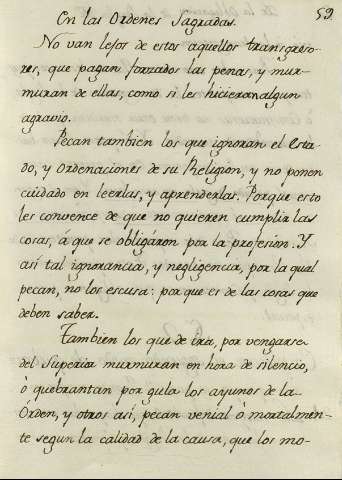 En las Ordenes Sagradas. 59.
No van lejos de estos aquellos transgreso-
res, que pagan forzados las penas, y mur-
muran de ellas, como si les hicieran algun
agravio.
Pecan tambien los que ignoran el Esta-
do, y Ordenaciones de su Religion, y no ponen
cuidado en leerlas, y aprenderlas. Porque esto
les convence de que no quieren cumplir las
cosas, á que se obligáron por la profesion. Y
así tal ignorancia, y negligencia, por la qual
pecan, no los escusa: porque es de las cosas que
deben saber.
Tambien los que de ira, por vengarse
del Superior murmuran en hora de silencio,
ò quebrantan por gula los ayunos de la
Órden, y otros así, pecan venial ò mortalmen-
te segun la calidad de la causa, que los mo-